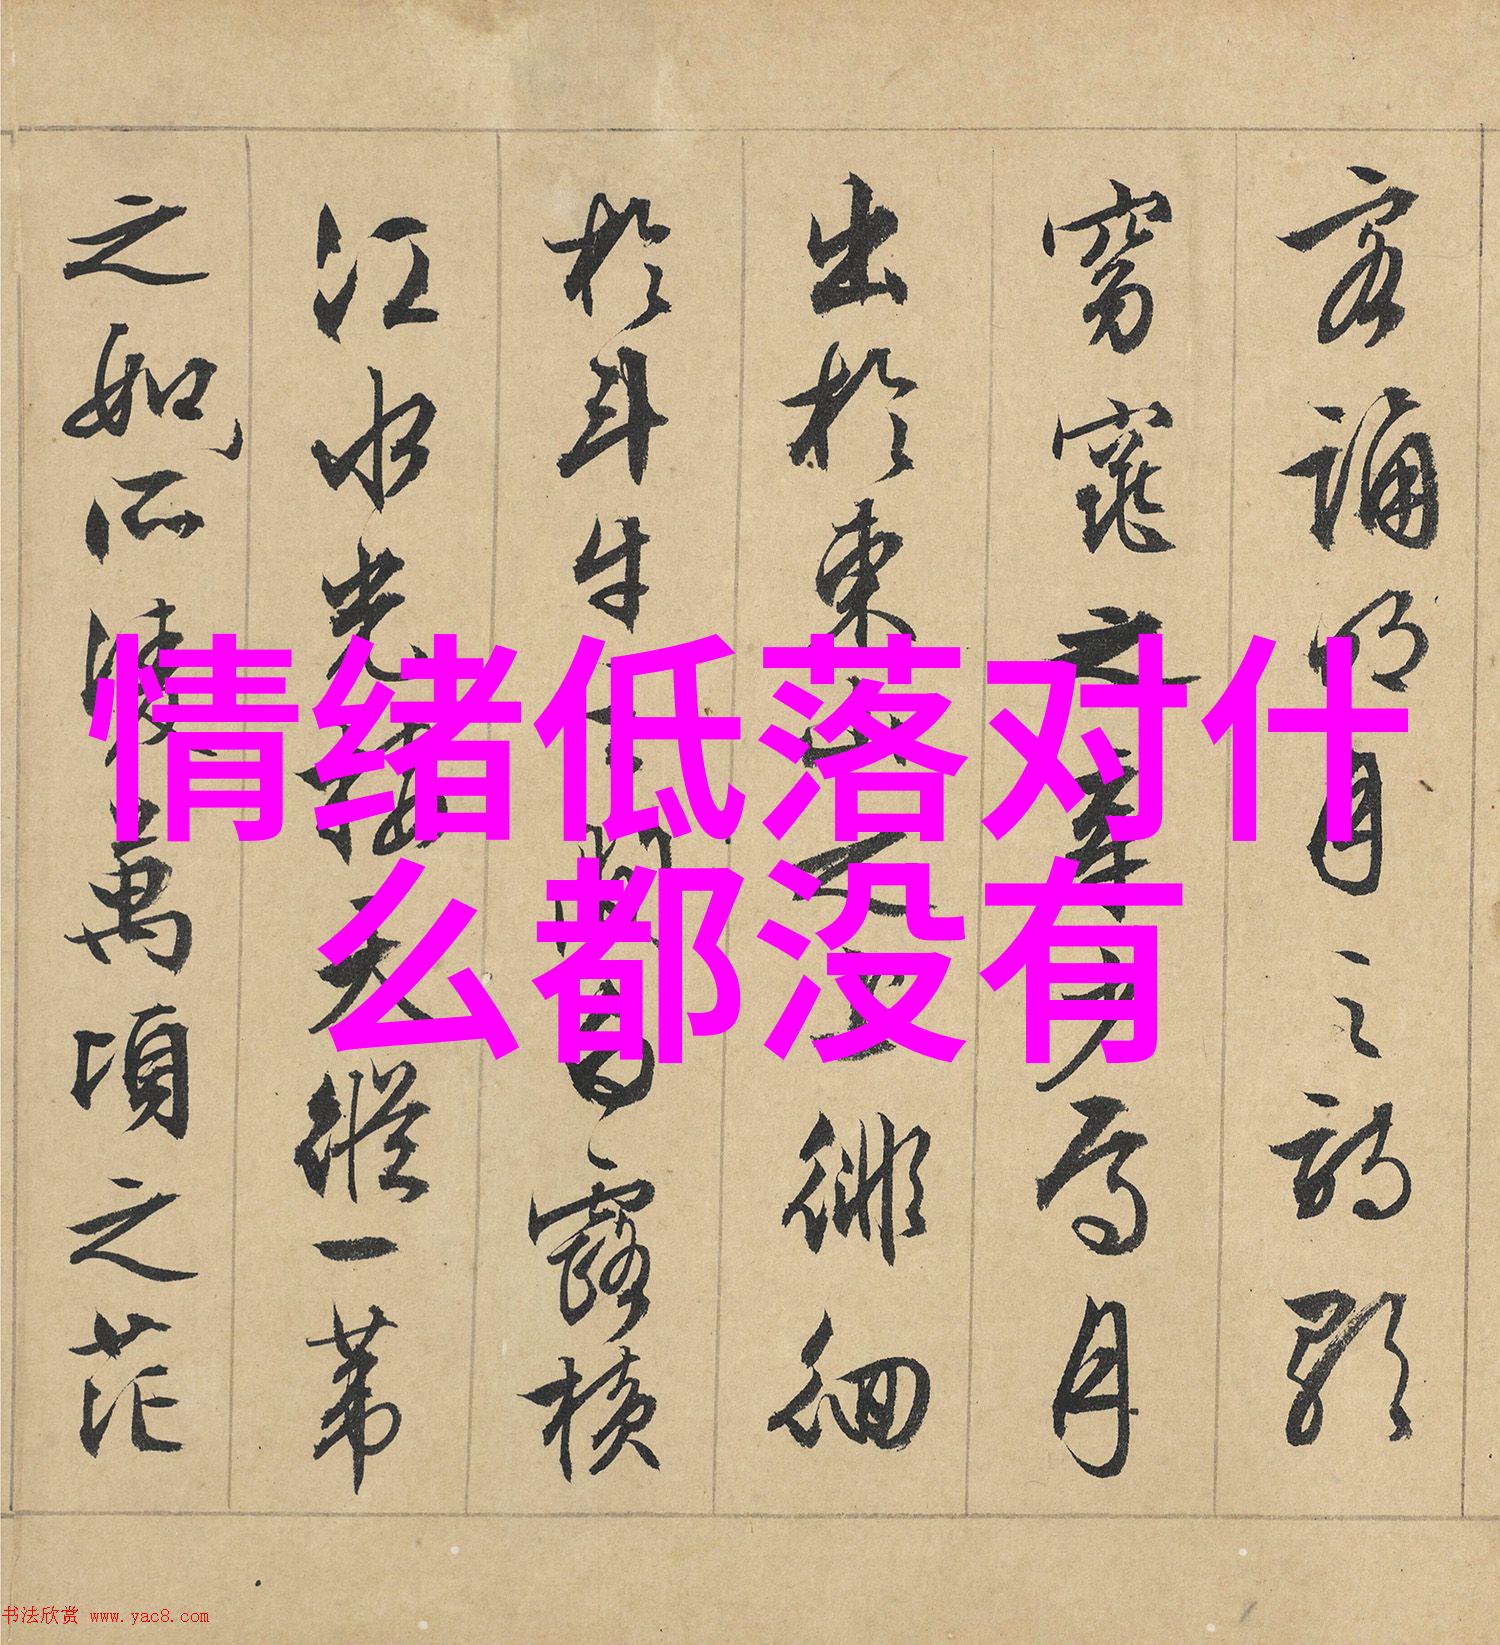 客誦明月之詩歌
窈窕之章少焉月
出於東山之上徘徊
於斗牛之間白露横
江水光接天縱一葦
之如所凌萬頃之茫
情绪低落对什
么都没有
书法欣赏 www.yac8.com